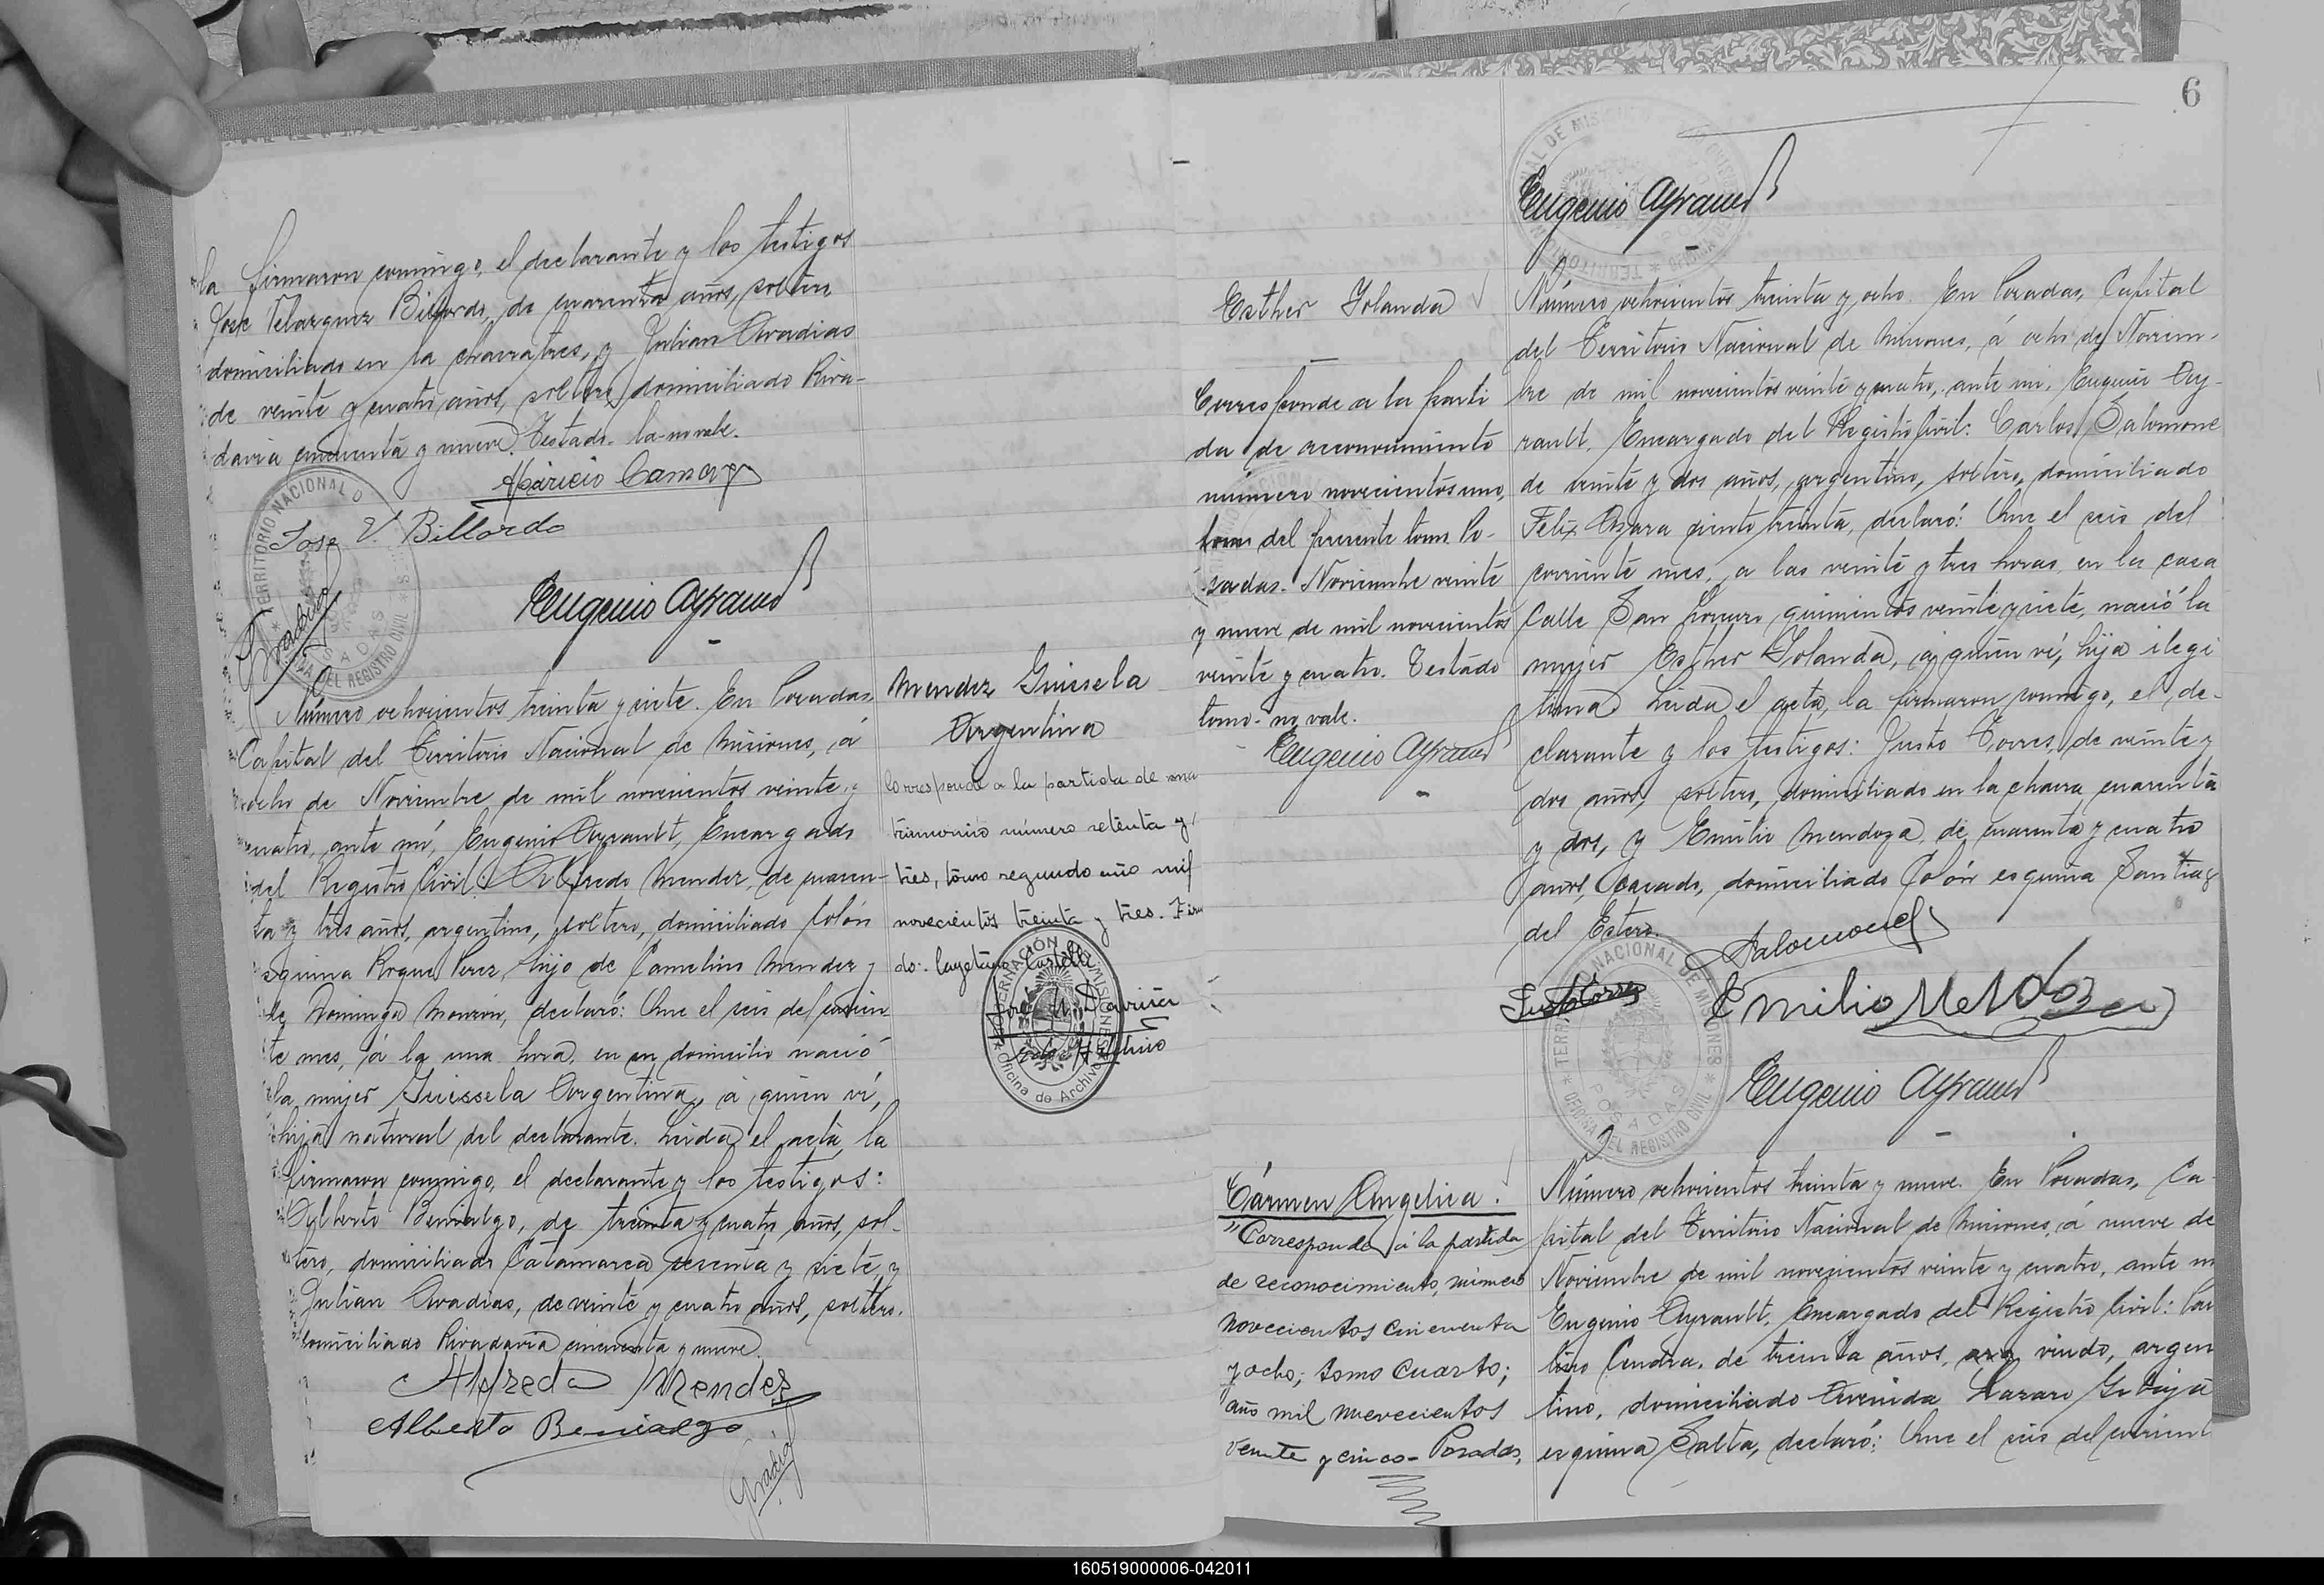 la firmaron conmigo, el declarante y los testigos
José Velazquez Billordo, de cuarenta años, soltero
domiciliado en la chacra tres, y Julian Avadias
de veinte y cuatro años, soltero, domiciliado Riva-
davia cincuenta y nueve. Testado. la-no vale.
Aparicio Camargo
Jose V. Billordo
Eugenio Ayrault
Número ochocientos treinta y siete. En Posadas,
Capital del Territorio Nacional de Misiones, á
ocho de Noviembre de mil novecientos veinte y
cuatro, ante mí, Eugenio Ayrault, Encargado
del Registro Civil: Alfredo Mendez, de cuaren-
ta y tres años, argentino, soltero, domiciliado Colón
esquina Roque Perez, hijo de Camelino Mendez y
de Dominga Monzón, declaró: Que el seis del corrien-
te mes, á la una hora, en su domicilio nació
la mujer Guissela Argentina, á quien ví,
hija natural del declarante. Leida el acta, la
firmaron conmigo, el declarante y los testigos:
Alberto Benialgo, de treinta y cuatro años, sol-
tero, domiciliado Catamarca sesenta y siete, y
Julian Avadias, de veinte y cuatro años, soltero,
domiciliado Rivadavia cincuenta y nueve.
Alfredo Mendez
Alberto Benialgo
Mendez Guissela
Argentina
Corresponde a la partida de ma
trimonio número setenta y
tres, tomo segundo año mil
novecientos treinta y tres. Firma
do: Cayetano Castelli
GOBERNACIÓN MISIONES
Oficina de Archivo
TERRITORIO NACIONAL D
POSADAS
OFICINA DEL REGISTRO CIVIL
6
Eugenio Ayrault
Esther Yolanda
Corresponde a la parti
da de reconocimiento
número novecientos uno,
tomo del presente tomo. Po-
sadas. Noviembre veinte
y nueve de mil novecientos
veinte y cuatro. Testado
tomo-no vale.
Eugenio Ayrault
Número ochocientos treinta y ocho. En Posadas, Capital
del Territorio Nacional de Misiones, á ocho de Noviem-
bre de mil novecientos veinte y cuatro, ante mi, Eugenio Ay-
rault, Encargado del Registro Civil: Carlos Salomone
de veinte y dos años, argentino, soltero, domiciliado
Felix Azara ciento treinta, declaró: Que el seis del
corriente mes, a las veinte y tres horas, en la casa
Calle San Lorenzo quinientos veinte y siete, nació la
mujer Esther Yolanda, á quien ví, hija ilegi
tima. Leida el acta, la firmaron conmigo, el de-
clarante y los testigos: Justo Torres, de veinte y
dos años, soltero, domiciliado en la chacra cuarenta
y dos, y Emilio Mendoza, de cuarenta y cuatro
años, casado, domiciliado Colón esquina Santiago
del Estero.
Salomone
Justo Torres
Emilio Mendoza
TERRITORIO NACIONAL DE MISIONES
POSADAS
OFICINA DEL REGISTRO CIVIL
Eugenio Ayrault
Cármen Angelica.
"Corresponde á la partida
de reconocimiento, número
novecientos cincuenta
y ocho; tomo cuarto;
año mil nuevecientos
veinte y cinco-Posadas,
Número ochocientos treinta y nueve. En Posadas, Ca-
pital del Territorio Nacional de Misiones, á nueve de
Noviembre de mil novecientos veinte y cuatro, ante m
Eugenio Ayrault, Encargado del Registro Civil:
de treinta años, viudo, argen
tino, domiciliado Avenida
esquina Salta, declaró: Que el seis del corrient
160519000006-042011